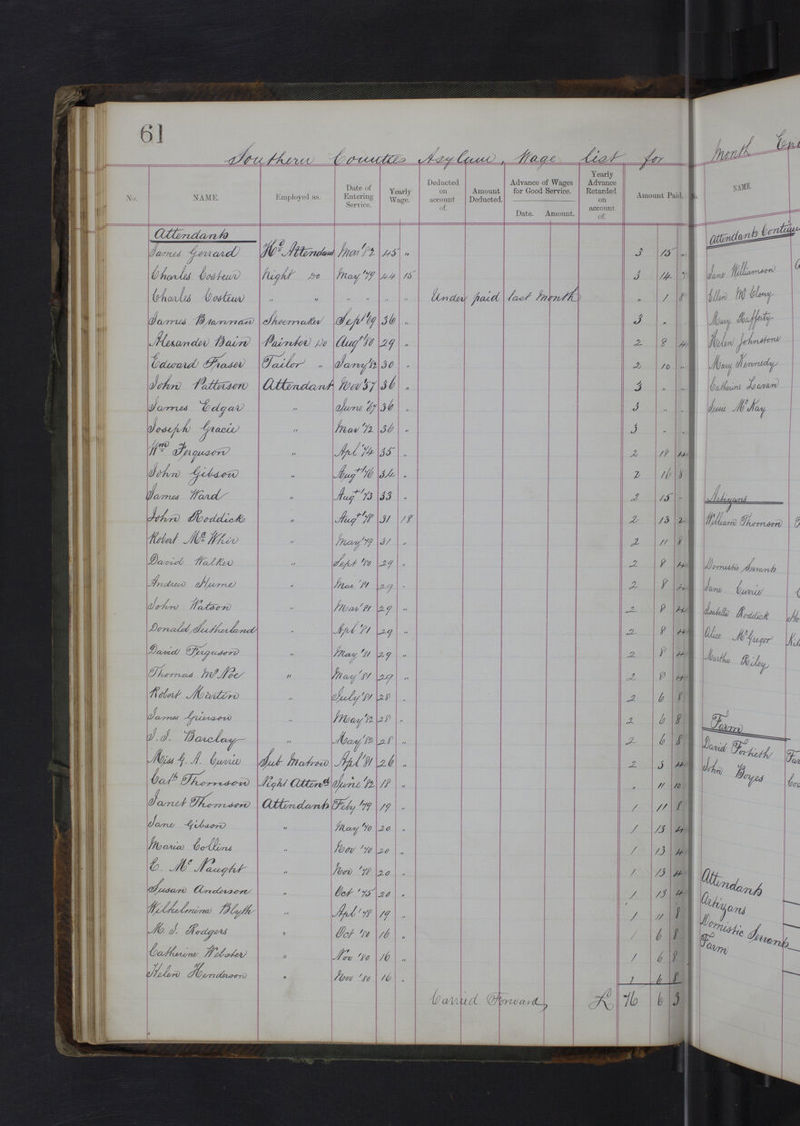 61
Southern Counties Asylum, Wage list for
No. NAME. Employed as. Date of Entering Service. Yearly Wage. Deducted on account of. Amount Deducted. Advance of Wages for Good Service. Date. Amount. Yearly Advance Retarded on account of. Amount Paid.
Attendants
James Gerrard Hd. Attendant Mar '82 45 " 3 15 "
Charles Costeur Night Do May '79 44 15 3 14 7
Charles Costeur " " - - - - Under paid last month " 1 8
James Brannan Shoemaker Sept '69 36 " 3 "
Alexander Bain Painter Do Augt '80 29 " 2 8 4
Edward Fraser Tailor " Jany '82 30 " 2 10 "
John Patterson Attendant Nov '57 36 " 3 " "
James Edgar " June '67 36 " 3 " "
Joseph Gracie " Mar '72 36 " 3 " "
Wm Ferguson " Apl '74 35 " 2 18 4
John Gibson " Augt '76 34 " 2 16 8
James Ward " Augt '73 33 " 2 15 "
John Roddick " Augt '78 31 18 2 13 2
Robert McWhir " May '79 31 " 2 11 8
David Walker " Sept '80 29 " 2 8 4
Andrew Hume " Mar '81 29 " 2 8 4
John Watson " Mar '81 29 " 2 8 4
Donald Sutherland " Apl '81 29 " 2 8 4
David Ferguson " May '81 29 " 2 8 4
Thomas McNoe " May '81 29 " 2 8 4
Robert Martin " July '81 28 " 2 6 8
James Grierson " May '82 28 " 2 6 8
J. S. Barclay " May '82 28 " 2 6 8
Miss G. A. Currie Sub Matron Apl '81 26 " 2 3 4
Cath Thomson Night Attendt June '82 18 " " 11 10
Janet Thomson Attendants Feby '79 19 " 1 11 8
Jane Gibson " May '70 20 " 1 13 4
Maria Collins " Nov '70 20 " 1 13 4
E. McNaught " Nov '78 20 " 1 13 4
Susan Anderson " Oct '75 20 " 1 13 4
Wilhelmina Blyth " Apl '78 19 " 1 11 8
M. S. Rodgers " Oct '80 16 " 1 6 8
Catherine Webster " Nov '80 16 " 1 6 8
Helen Henderson " Nov '80 16 " 1 6 8
Carried Forward £ 76 6 3
Month
NAME.
Attendants
Jane Williamson
Ellen McClony
Mary Rafferty
Helen Johnstone
Mary Kennedy
Catherine Lavan
McKay
Artizans
William Thomson
Domestic Servants
Jane Currie
Isabella Roddick
Alice McGregor
Martha Riley
Farm
David Forteith
John Boyes
Attendants
Artizans
Domestic Servants
Farm